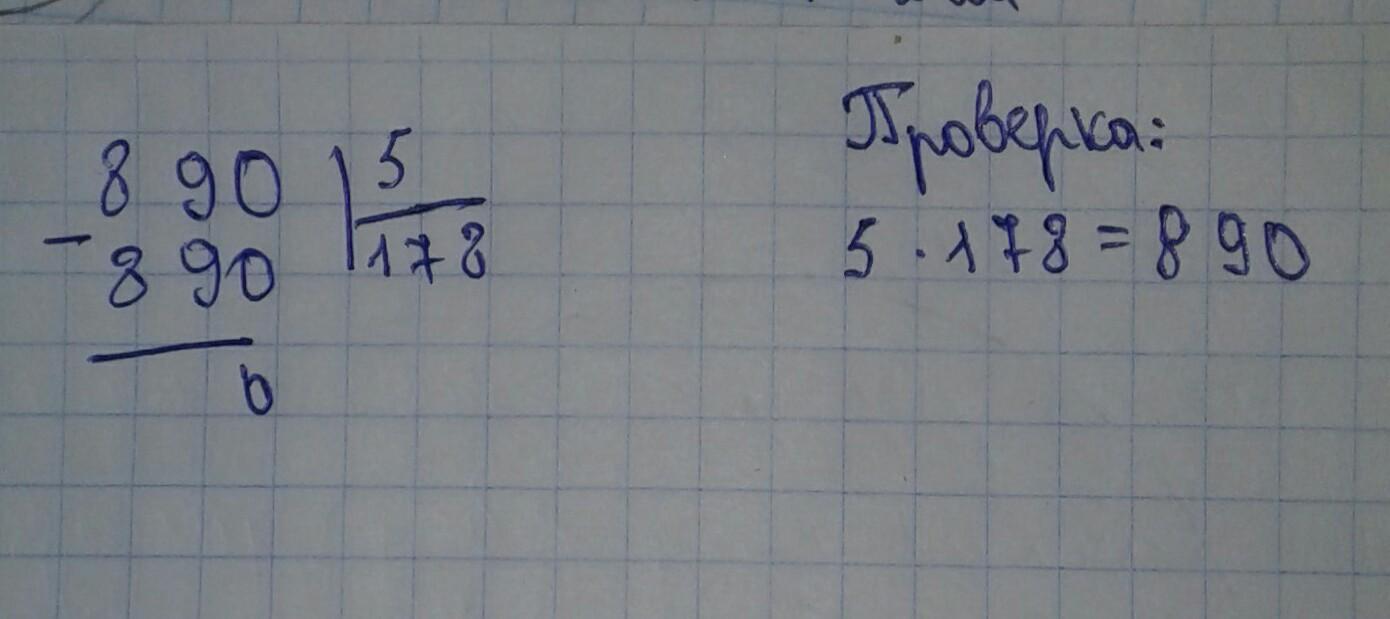 890 | 5
- 890 | 178
0
Проверка:
5 · 178 = 890